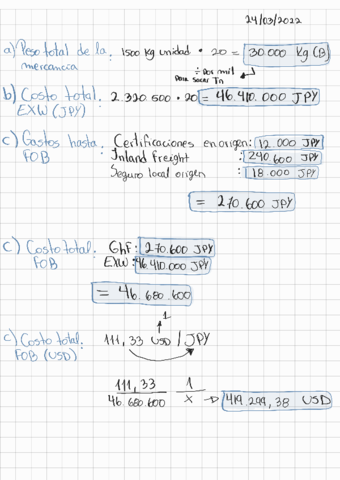 24/03/2022
a) Peso total de la : 1500 Kg unidad · 20 = 30.000 Kg (B)
mercancia
÷ por mil
para sacar Tn
b) Costo total: 2.320.500 · 20 = 46.410.000 JPY
EXW (JPY)
c) Gastos hasta: Certificaciones en origen: 12.000 JPY
FOB Inland Freight : 240.600 JPY
Seguro local origen : 18.000 JPY
= 270.600 JPY
c) Costo total: GhF: 270.600 JPY
FOB EXW: 46.410.000 JPY
= 46.680.600
1
c) Costo total: 111,33 USD / JPY
FOB (USD)
111,33 1
46.680.600 X → 419.299,38 USD